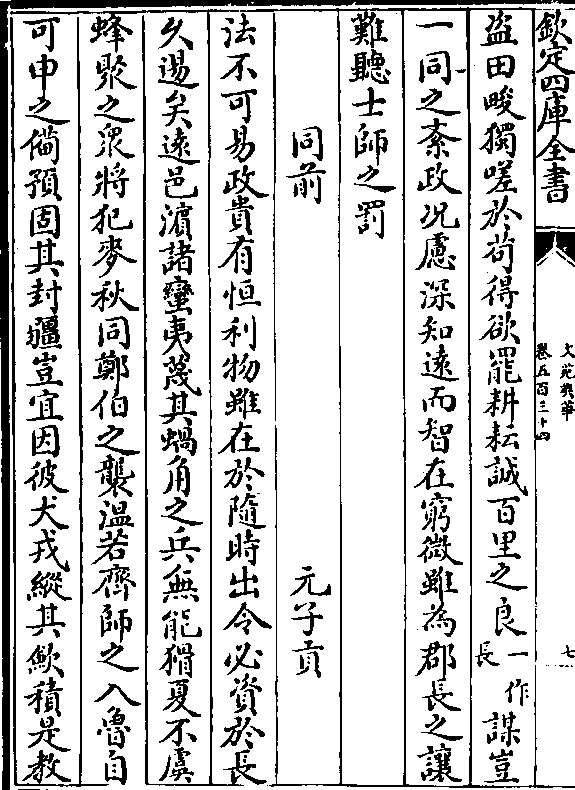 欽定四庫全書
文苑英華
卷五百三十四
七
盜田畯獨嗟於茍得欲罷耕耘誠百里之良一作長謀豈
一同之紊政况慮深知遠而智在窮微雖為郡長之讓
難聽士師之罰
同前 元子貢
法不可易政貴有恒利物雖在於隨時出令必資於長
久逷矣遠邑濵諸蠻夷蔑其蝸角之兵無能猾夏不虞
蜂聚之衆將犯麥秋同鄭伯之襲温若齊師之入魯自
可申之備預固其封疆豈宜因彼犬戎縱其歛積是教